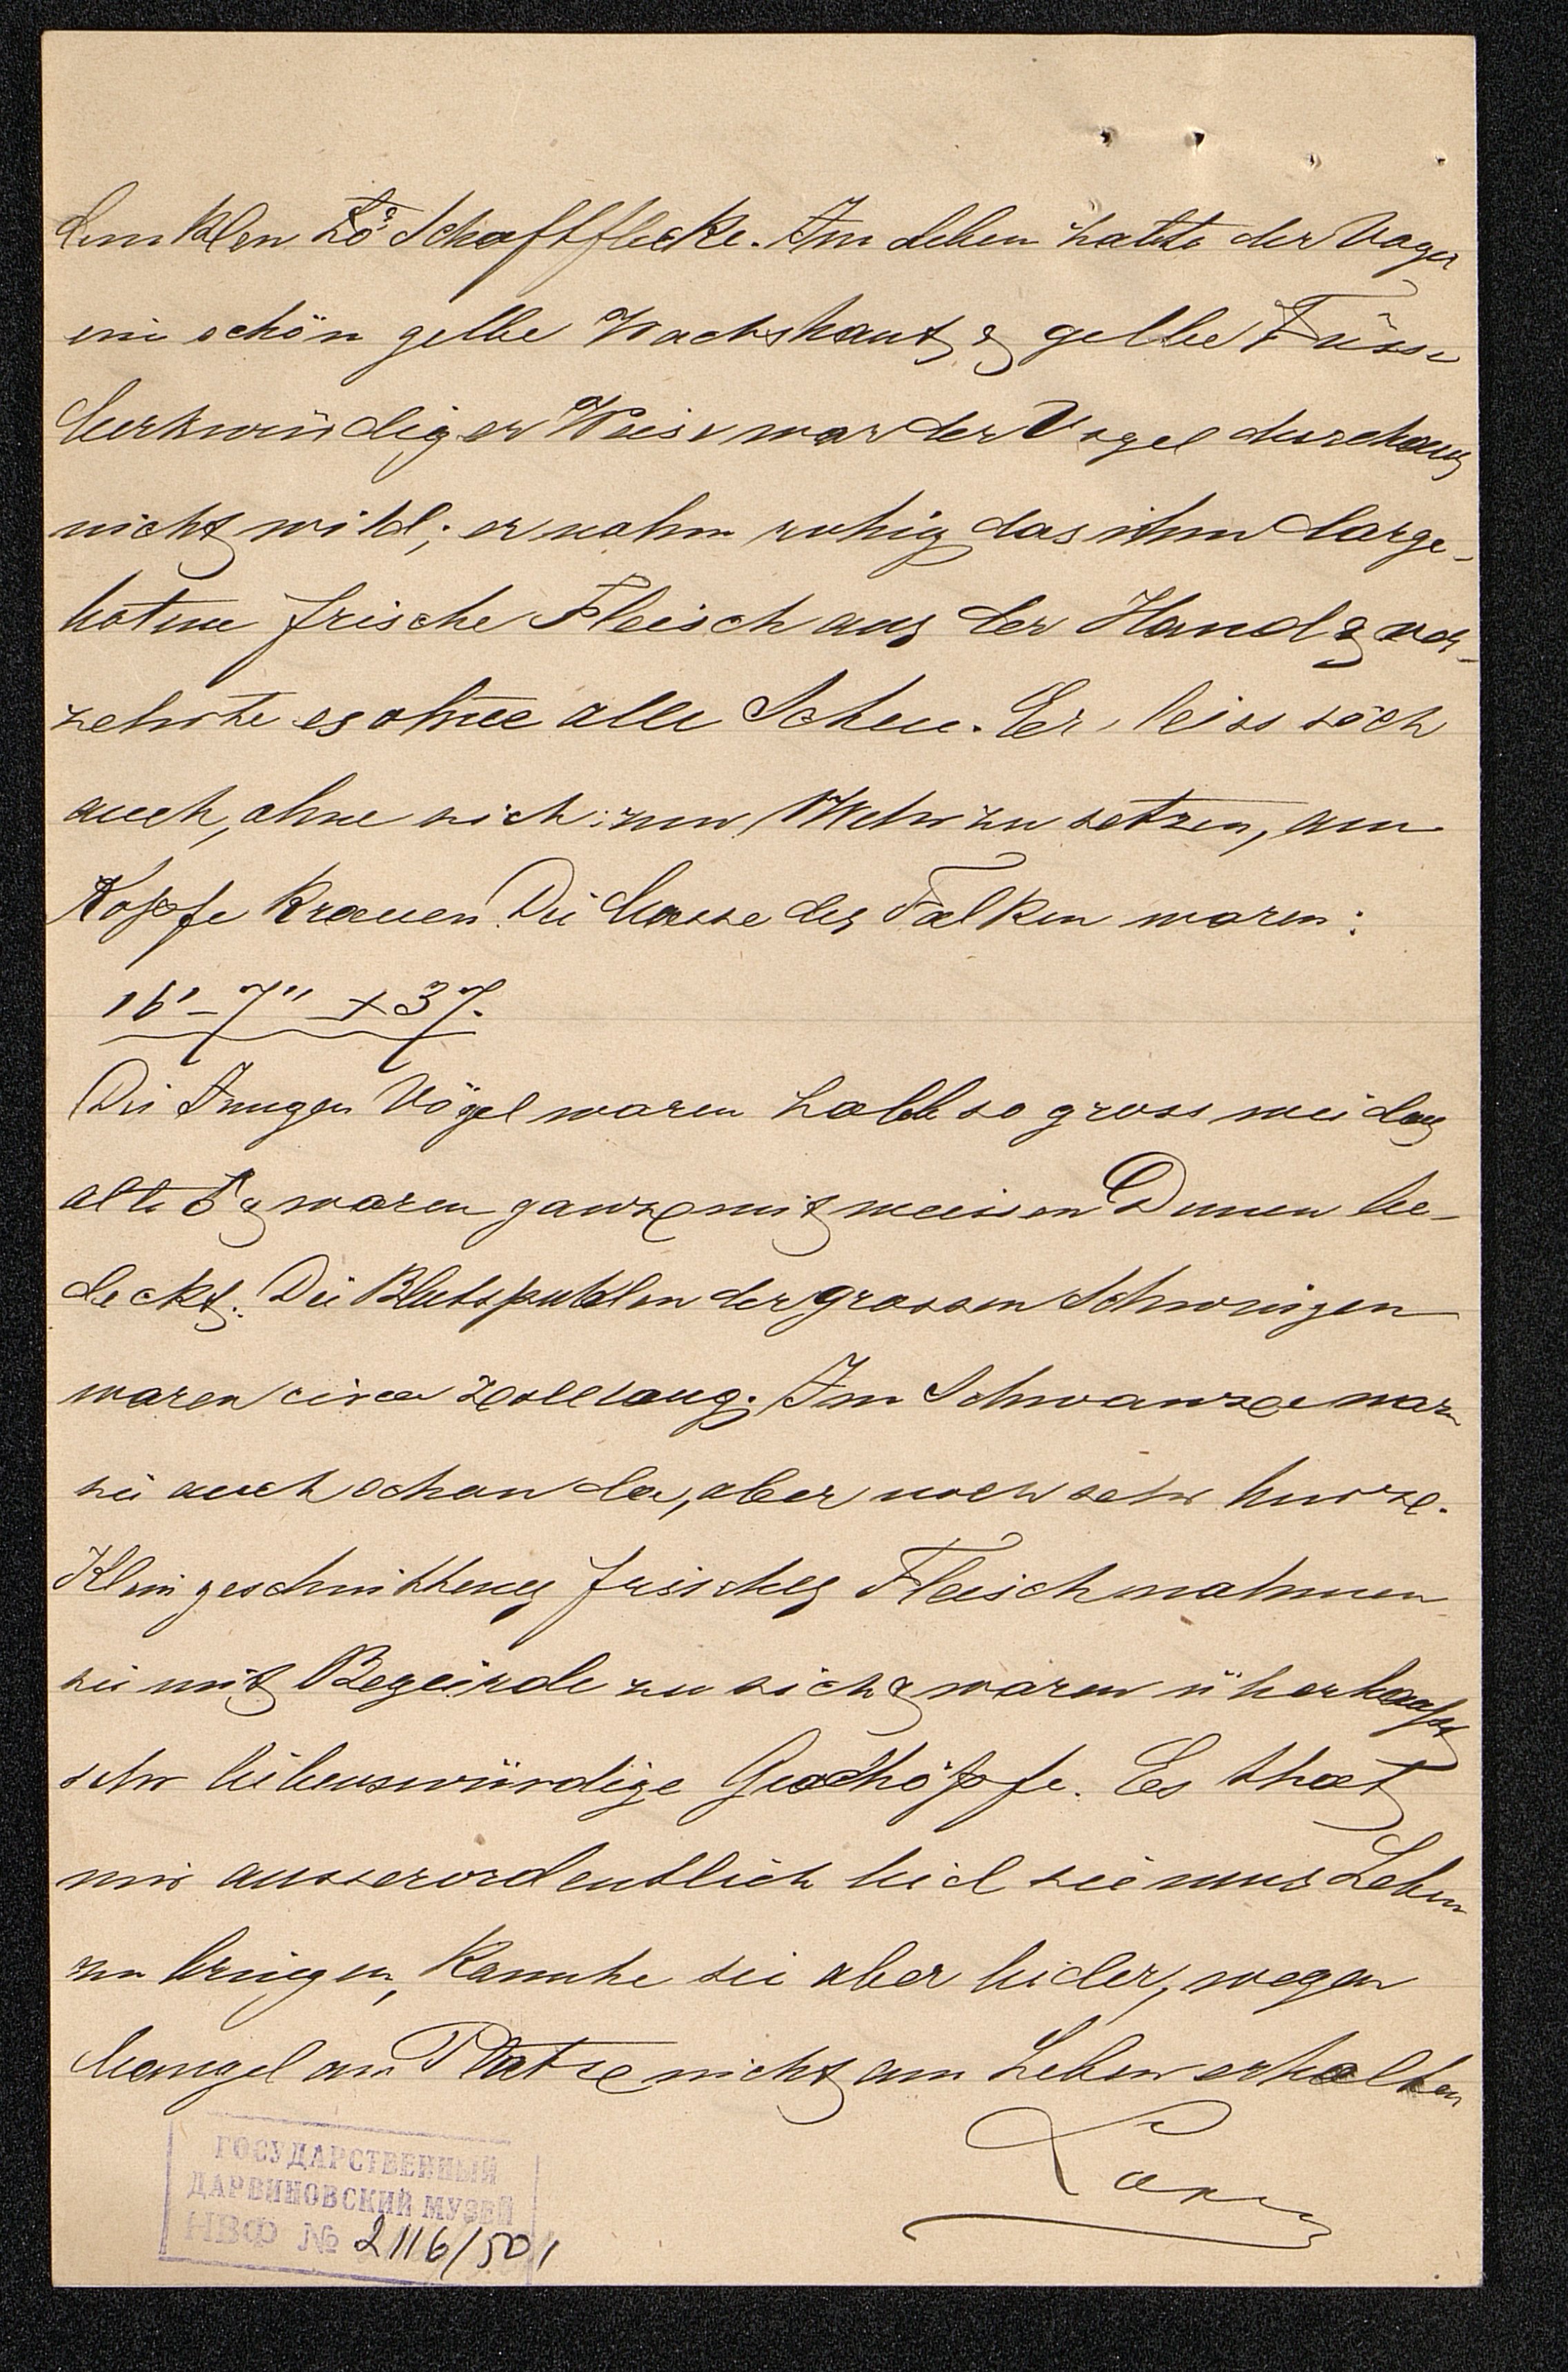 dunklen Schaftflecke. Im Leben hatte der Vogel
eine schön gelbe Wachshaut & gelbe Füsse
Merkwürdiger Weise war der Vogel durchaus
nicht wild; er nahm ruhig das ihm darge-
botene frische Fleisch aus der Hand & ver-
zehrte es ohne alle Scheu. Er liess sich
auch, ohne sich zur Wehr zu setzen, am
Kopfe krauen. Die Masse des Falken waren:
16'-7" + 37.
Die Jungen Vögel waren halb so gross wie das
alte ♂ & waren ganz mit weissen Dunen be-
deckt. Die Blutspuhlen der grossen Schwingen
waren circa Zoll lang. Im Schwanze waren
sie auch schon da, aber noch sehr kurz.
Klein geschnittenes frisches Fleisch nahmen
sie mit Begierde zu sich & waren überhaupt
sehr liebenswürdige Geschöpfe. Es that
mir ausserordentlich leid sie ums Leben
zu bringen, konnte sie aber leider, wegen
Mangel am Platze nicht am Leben erhalten
Lorenz
ГОСУДАРСТВЕННЫЙ
ДАРВИНОВСКИЙ МУЗЕЙ
НВФ № 2116/501